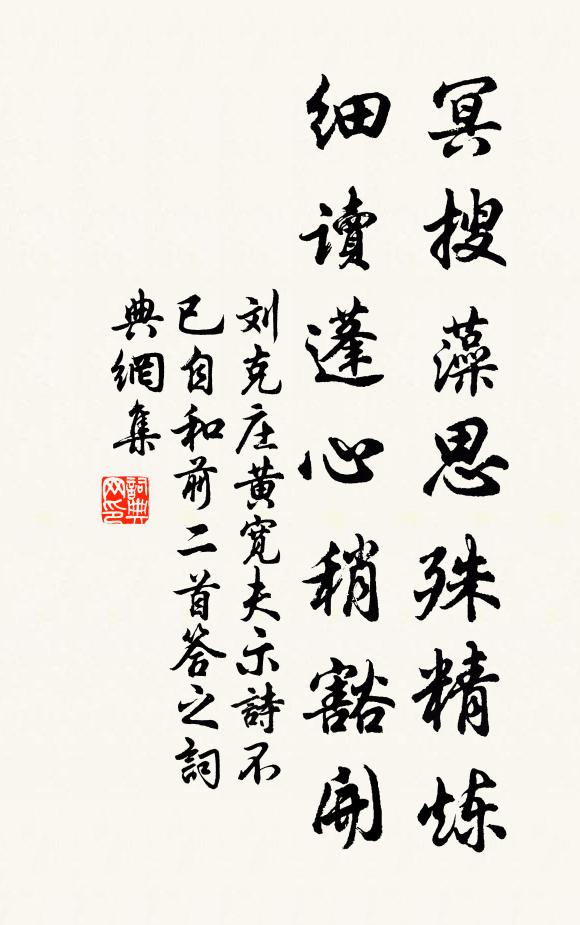 冥搜藻思殊精炼
细读蓬心稍豁開
刘克庄黄寬夫示詩不
已自和前二首答之詞
典網集
詞典网印